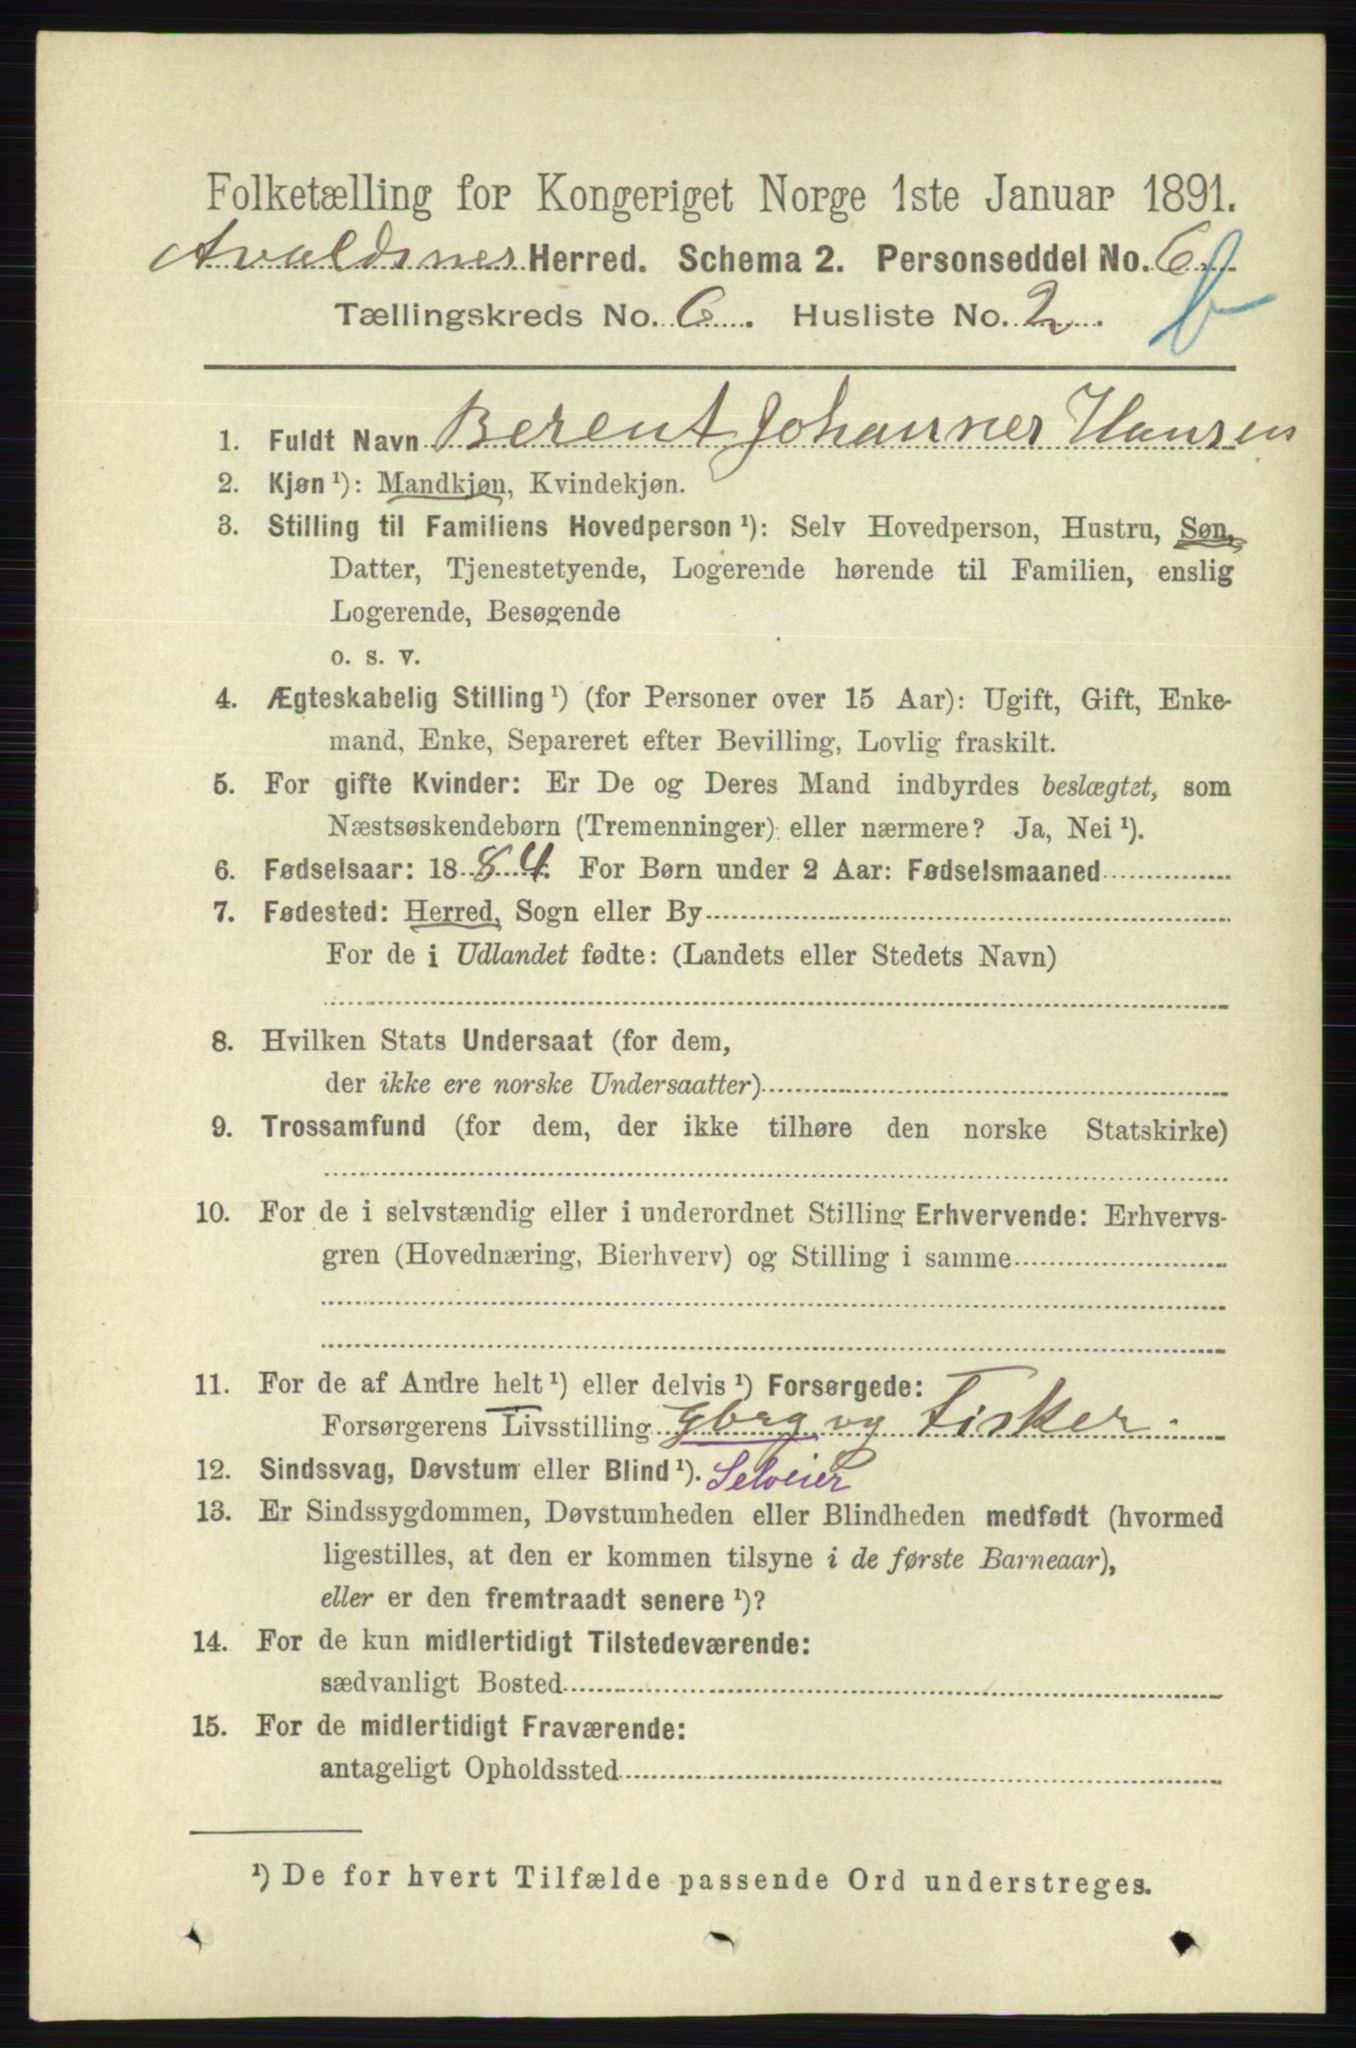 Folketælling for Kongeriget Norge 1ste Januar 1891.
Avaldsnes Herred. Schema 2. Personseddel No. 6
Tællingskreds No. 6. Husliste No. 2. b
1. Fuldt Navn Berent Johannes Hansen
2. Kjøn ¹): Mandkjøn, Kvindekjøn.
3. Stilling til Familiens Hovedperson ¹): Selv Hovedperson, Hustru, Søn,
Datter, Tjenestetyende, Logerende hørende til Familien, enslig
Logerende, Besøgende
o. s. v.
4. Ægteskabelig Stilling ¹) (for Personer over 15 Aar): Ugift, Gift, Enke-
mand, Enke, Separeret efter Bevilling, Lovlig fraskilt.
5. For gifte Kvinder: Er De og Deres Mand indbyrdes beslægtet, som
Næstsøskendebørn (Tremenninger) eller nærmere? Ja, Nei ¹).
6. Fødselsaar: 1884. For Børn under 2 Aar: Fødselsmaaned
7. Fødested: Herred, Sogn eller By
For de i Udlandet fødte: (Landets eller Stedets Navn)
8. Hvilken Stats Undersaat (for dem,
der ikke ere norske Undersaatter)
9. Trossamfund (for dem, der ikke tilhøre den norske Statskirke)
10. For de i selvstændig eller i underordnet Stilling Erhvervende: Erhvervs-
gren (Hovednæring, Bierhverv) og Stilling i samme
11. For de af Andre helt ¹) eller delvis ¹) Forsørgede:
Forsørgerens Livsstilling Gbrg og Fisker.
12. Sindssvag, Døvstum eller Blind ¹). Selveier
13. Er Sindssygdommen, Døvstumheden eller Blindheden medfødt (hvormed
ligestilles, at den er kommen tilsyne i de første Barneaar),
eller er den fremtraadt senere ¹)?
14. For de kun midlertidigt Tilstedeværende:
sædvanligt Bosted
15. For de midlertidigt Fraværende:
antageligt Opholdssted
¹) De for hvert Tilfælde passende Ord understreges.